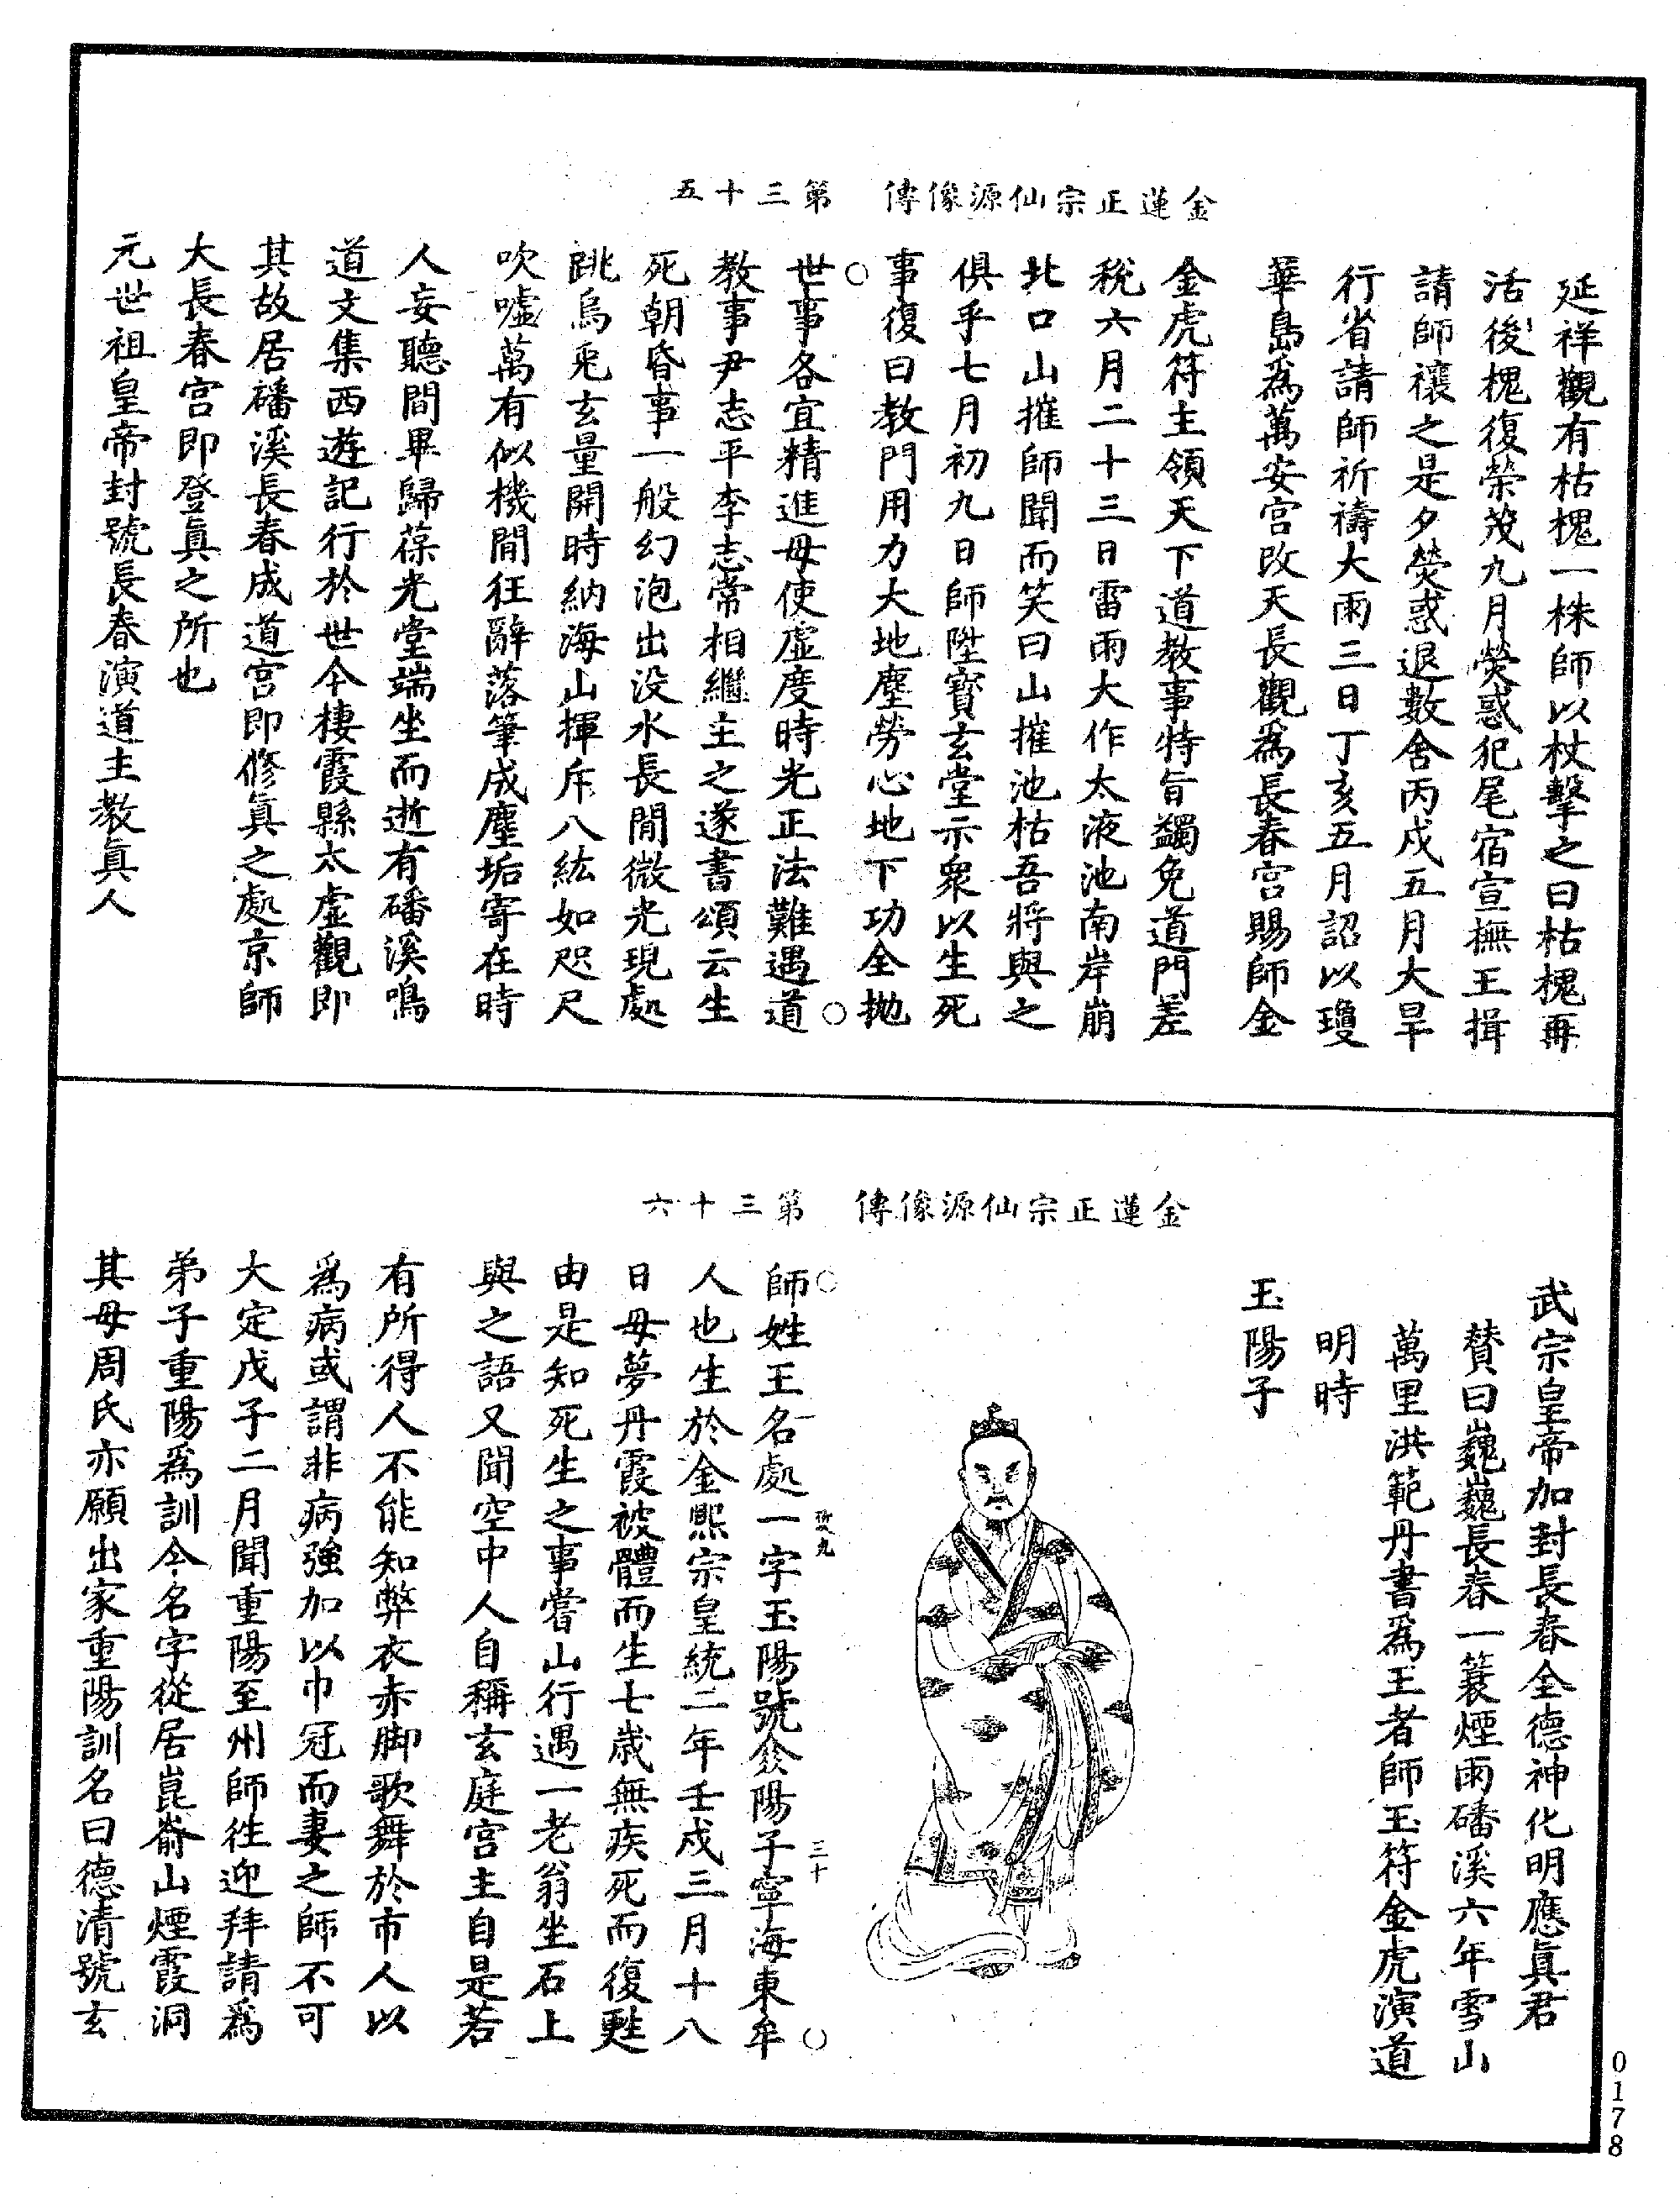 金蓮正宗仙源像傳　第三十五
延祥觀有枯槐一株師以杖擊之曰枯槐再
活後槐復榮茂九月熒惑犯尾宿宣撫王揖
請師禳之是夕熒惑退數舍丙戌五月大旱
行省請師祈禱大雨三日丁亥五月詔以瓊
華島爲萬安宮改天長觀爲長春宮賜師金
金虎符主領天下道教事特旨蠲免道門差
稅六月二十三日雷雨大作太液池南岸崩
北口山摧師聞而笑曰山摧池枯吾將與之
俱乎七月初九日師陞寶玄堂示衆以生死
事復曰教門用力大地塵勞心地下功全拋
世事各宜精進毋使虛度時光正法難遇道
教事尹志平李志常相繼主之遂書頌云生
死朝昏事一般幻泡出没水長閒微光現處
跳烏兎玄量開時納海山揮斥八紘如咫尺
吹噓萬有似機閒狂辭落筆成塵垢寄在時
人妄聽間畢歸葆光堂端坐而逝有磻溪鳴
道文集西遊記行於世今棲霞縣太虛觀即
其故居磻溪長春成道宮即修眞之處京師
大長春宮即登眞之所也
元世祖皇帝封號長春演道主教眞人
金蓮正宗仙源像傳　第三十六
武宗皇帝加封長春全德神化明應眞君
賛曰巍巍長春一簑煙雨磻溪六年雪山
萬里洪範丹書爲王者師玉符金虎演道
明時
玉陽子
師姓王名處一字玉陽號傘陽子寧海東牟
人也生於金熙宗皇統二年壬戌三月十八
日母夢丹霞被體而生七歲無疾死而復甦
由是知死生之事嘗山行遇一老翁坐石上
與之語又聞空中人自稱玄庭宮主自是若
有所得人不能知弊衣赤脚歌舞於市人以
爲病或謂非病強加以巾冠而妻之師不可
大定戊子二月聞重陽至州師徃迎拜請爲
弟子重陽爲訓今名字從居崑嵛山煙霞洞
其母周氏亦願出家重陽訓名曰德清號玄
三十
0178